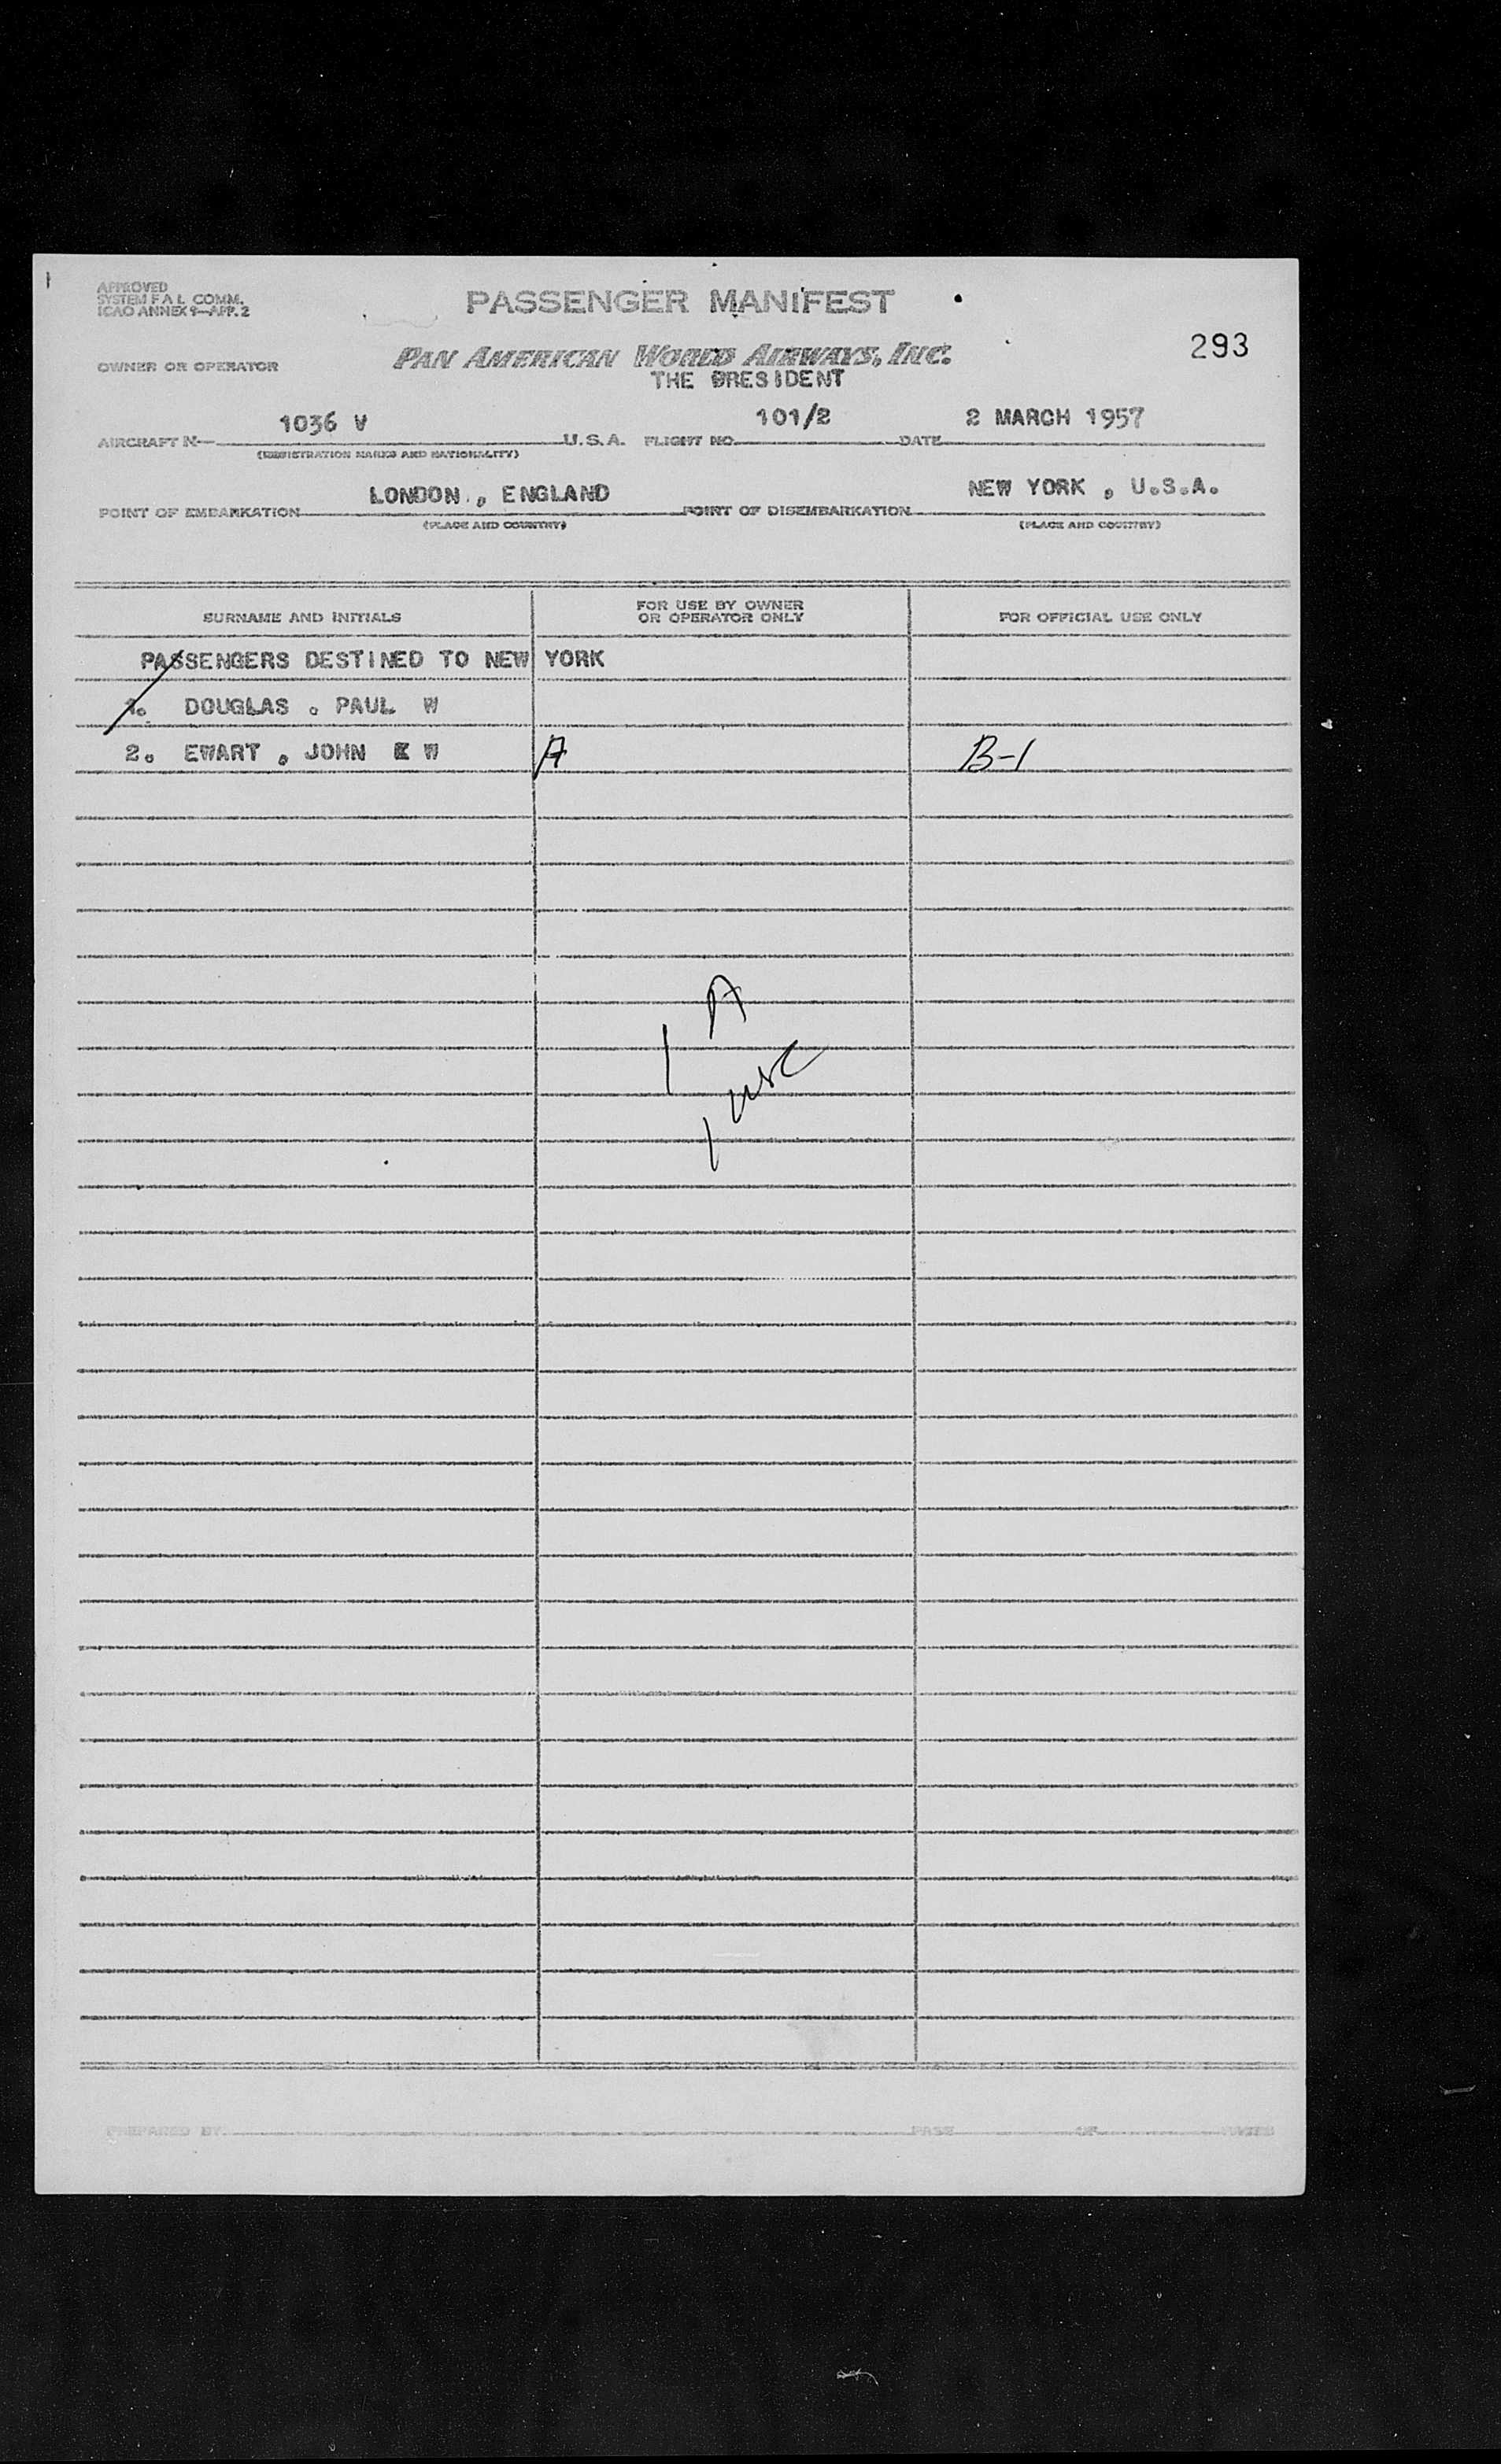 APPROVED
SYSTEM F A L COMM.
ICAO ANNEX 9—APP. 2
PASSENGER MANIFEST
293
OWNER OR OPERATOR
PAN AMERICAN WORLD AIRWAYS, INC.
THE PRESIDENT
AIRCRAFT N— 1036 V U.S.A. FLIGHT NO. 101/2 DATE 2 MARCH 1957
(REGISTRATION MARKS AND NATIONALITY)
POINT OF EMBARKATION LONDON , ENGLAND POINT OF DISEMBARKATION NEW YORK , U.S.A.
(PLACE AND COUNTRY) (PLACE AND COUNTRY)
SURNAME AND INITIALS FOR USE BY OWNER OR OPERATOR ONLY FOR OFFICIAL USE ONLY
PASSENGERS DESTINED TO NEW YORK
1. DOUGLAS . PAUL W
2. EWART , JOHN K W A B-1
1 A
1 usc
PREPARED BY PAGE OF PAGES